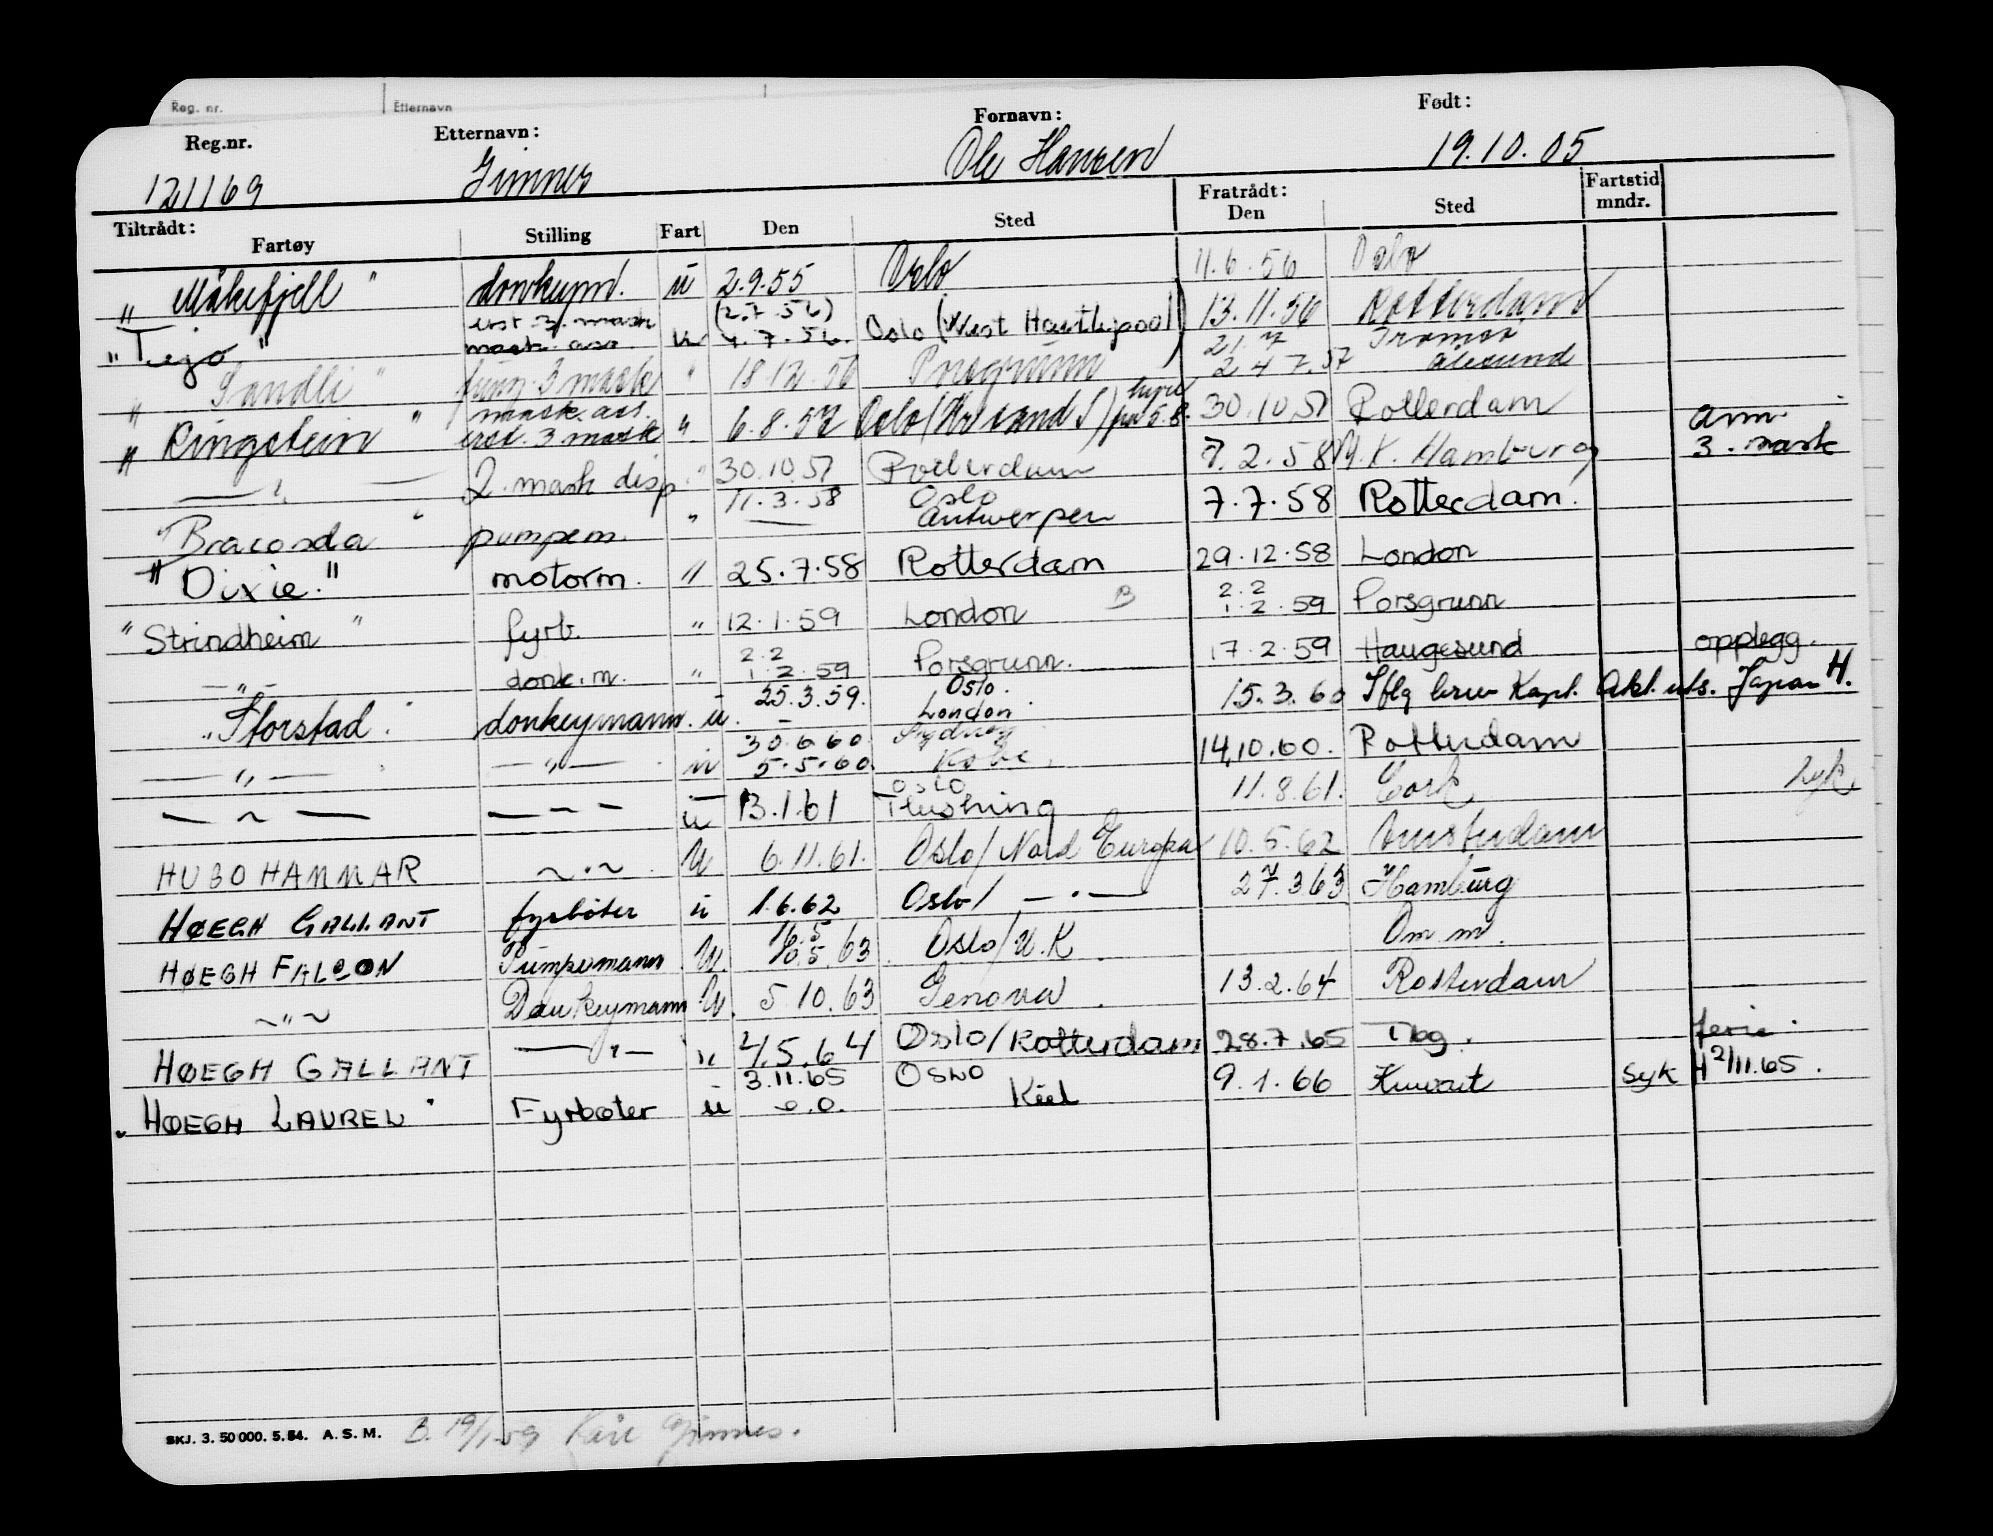 Reg. nr. Etternavn
Reg.nr. Etternavn: Fornavn: Født:
121169 Ole Hansen 19.10.05
Tiltrådt: Fratrådt: Fartstid
Fartøy Stilling Fart Den Sted Den Sted mndr.
" Måkefjell " donkeym. u 2.9.55 Oslo 11.6.56 Oslo
erst. 3. mask (2.7.56)
" Tejo " mask. ass. u 4.7.56. Oslo (West Hartlepool) 13.11.56 Rotterdam
21.7 Tromsø
" Sandli " fung. 3 mask " 18.12.56 Porsgrunn 24.7.57 Ålesund
mask. ass. hyre
" Ringstein " erst. 3. mask " 6.8.57 Oslo (Kr sand S) fra 5.8. 30.10.57 Rotterdam
anm.
— " — 2. mask disp " 30.10.57 Rotterdam 7.2.58 Hamburg 3. mask
11.3.58 Oslo
" Braconda " pumpem. " — Antwerpen 7.7.58 Rotterdam.
" Dixie. " motorm. " 25.7.58 Rotterdam 29.12.58 London
2.2
" Strindheim " fyrb. " 12.1.59 London B 1.2.59 Porsgrunn
2.2
— " — donk.m. " 1.2.59 Porsgrunn. 17.2.59 Haugesund opplegg.
25.3.59. Oslo.
" Storstad " donkeymann. u. — London 15.3.60 Iflg brev Kapt. Akt. uts. Japan H.
30.6.60 Sydney
— " — — " — u 5.5.60. Kobe. 14.10.60. Rotterdam
Oslo
— " — — " — u 13.1.61 Flushing 11.8.61. Cork syk
HUGO HAMMAR — " — U 6.11.61. Oslo/Nord Europa 10.5.62 Amsterdam
HØEGH GALLANT fyrbøter u 1.6.62 Oslo/ — " — 27.3 63 Hamburg
16.5
HØEGH FALCON Pumpemann U. 10.5.63. Oslo/U.K. Om m.
— " — Donkeymann U. 5.10.63 Genova. 13.2.64 Rotterdam
HØEGH GALLANT — " — u 4.5.64 Oslo/Rotterdam 28.7.65 Tbg. ferie.
3.11.65 OSLO H 2/11.65.
" HØEGH LAUREL " Fyrbøter u 0.0. Kiel 9.1.66 Kuwait syk
SKJ. 3. 50 000. 5.54. A. S. M. B. 19/1-59 Kåre Gjinnes.